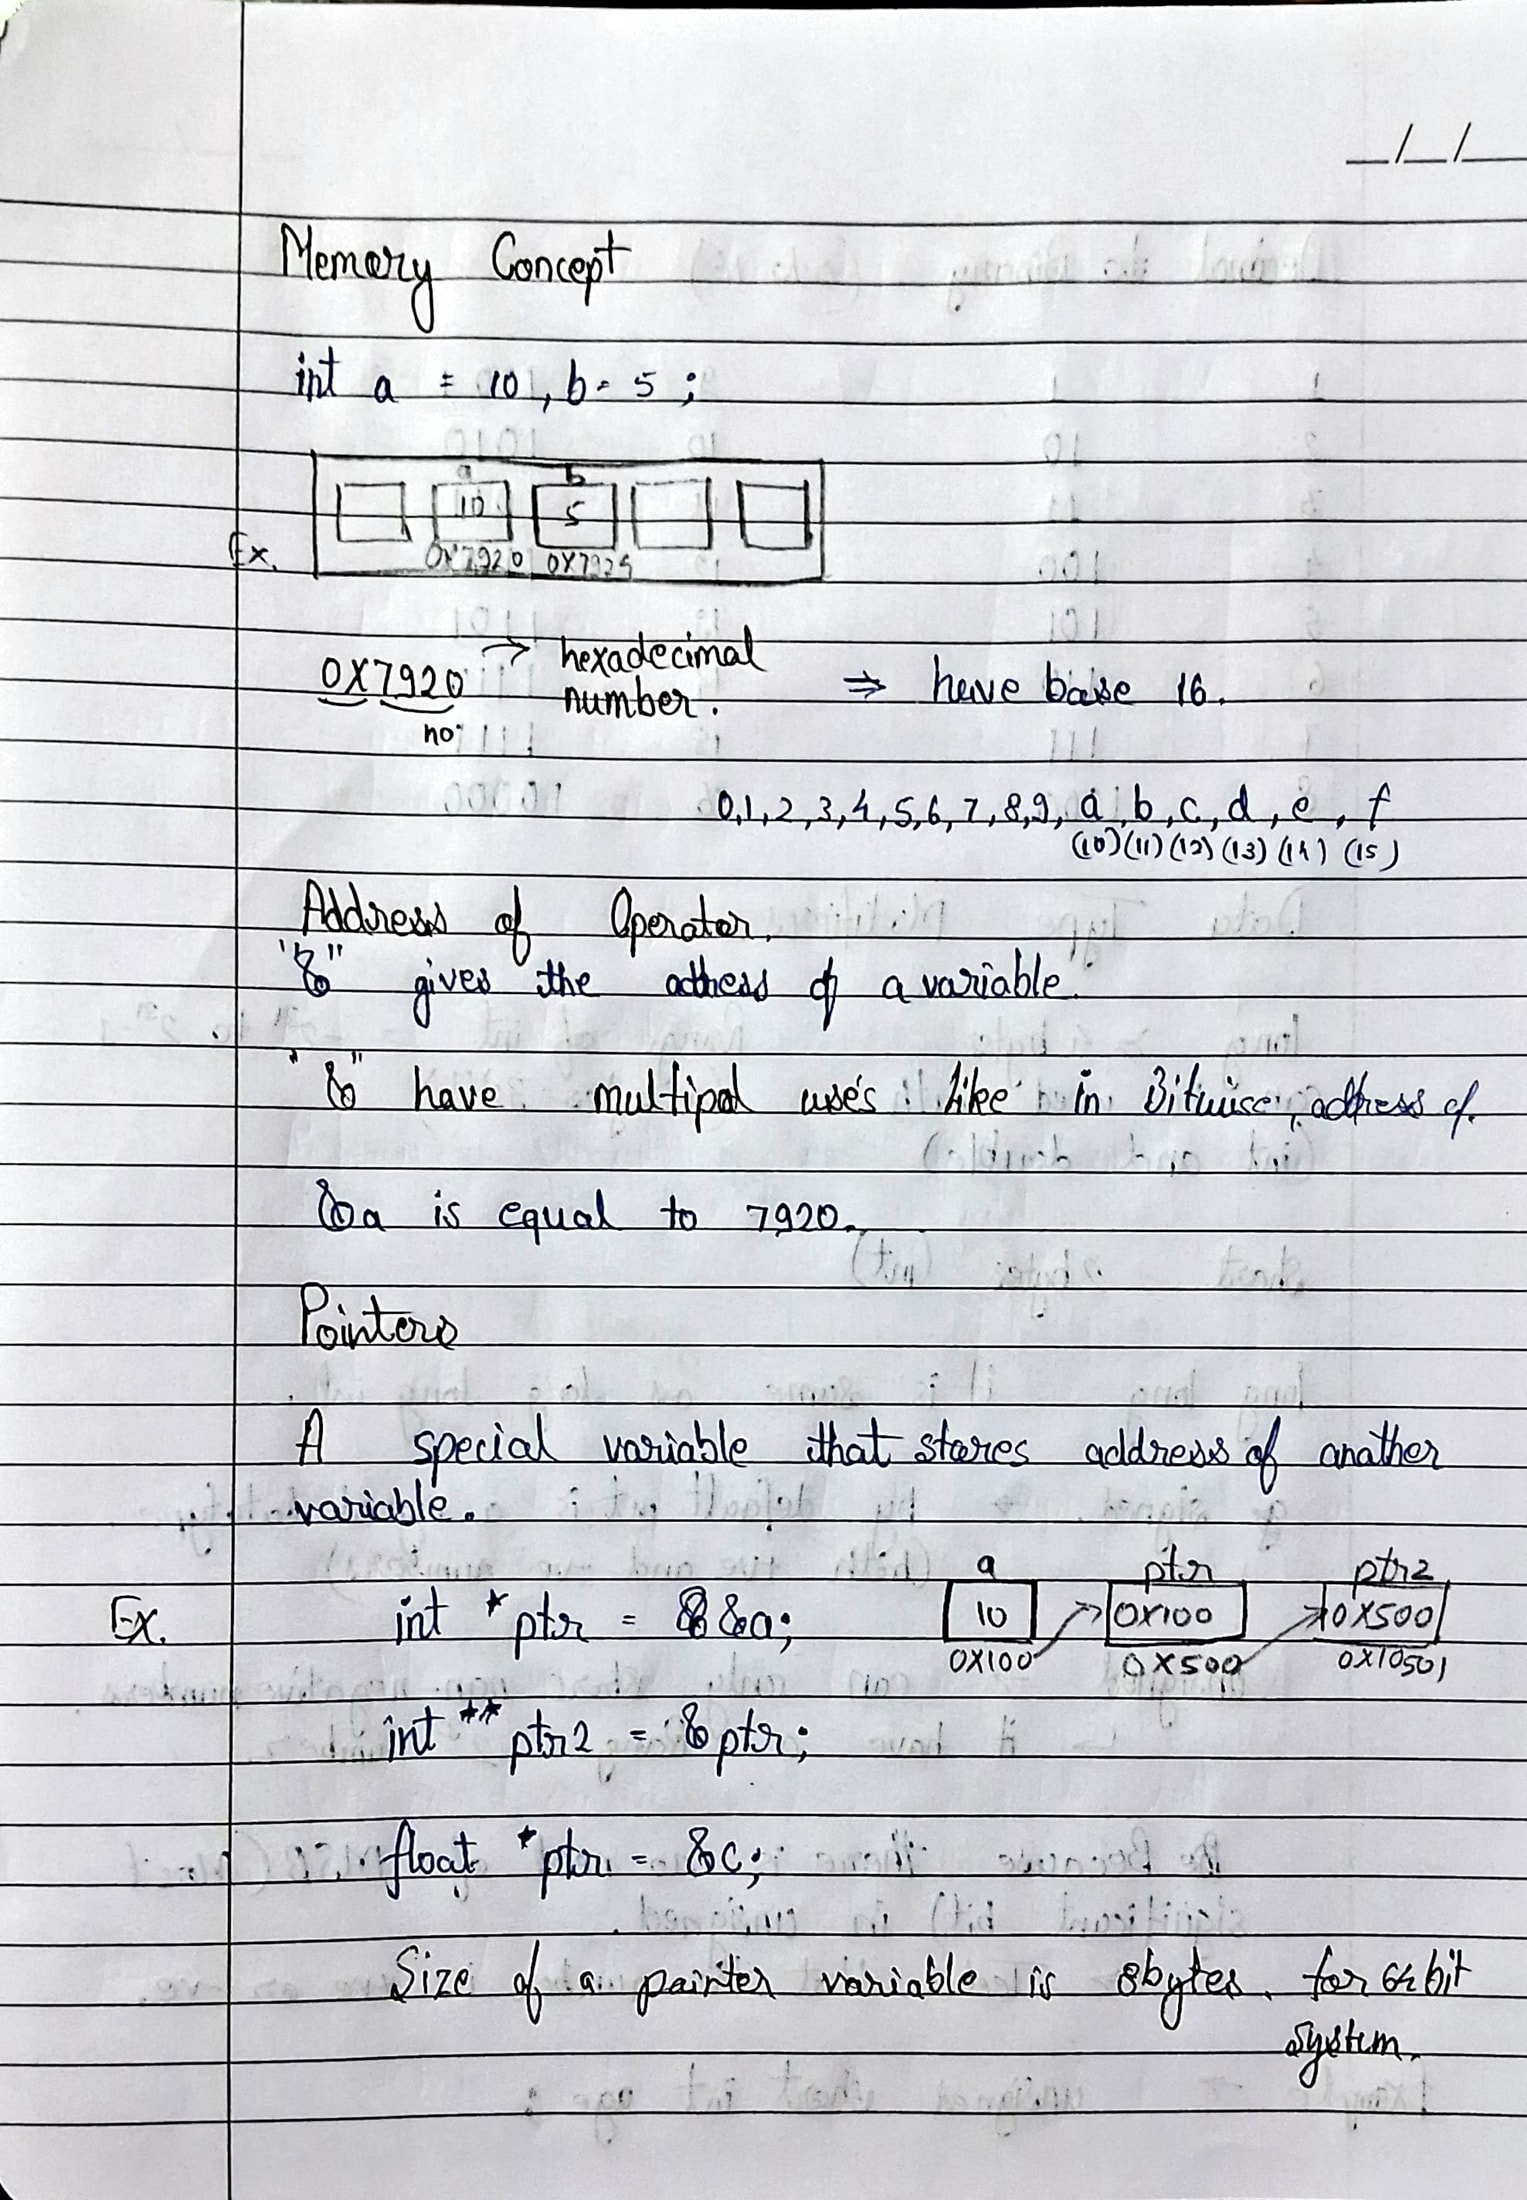 _/_/_
Memory Concept
int a = 10, b = 5;
a b
10 5
Ex. 0X7920 0X7925
0X7920 → hexadecimal
number. ⇒ have base 16.
no.
0,1,2,3,4,5,6,7,8,9, a, b, c, d, e, f
(10) (11) (12) (13) (14) (15)
Address of Operator.
"&" gives the address of a variable.
"&" have multipal use's like in Bitwise, address of.
&a is equal to 7920.
Pointers
A special variable that stores address of another
variable.
a ptr ptr2
Ex. int *ptr = &a; 10 0X100 0X500
0X100 0X500 0X10501
int **ptr2 = &ptr;
float *ptr = &c;
Size of a pointer variable is 8bytes. for 64 bit
system.